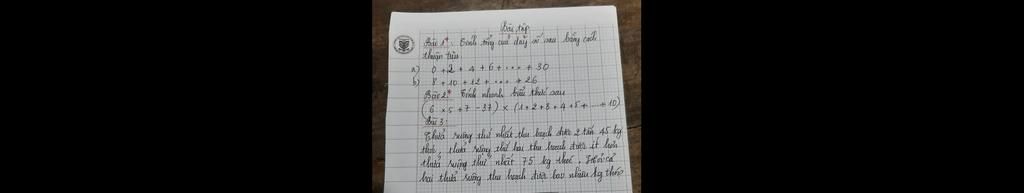 Bài tập
Bài 1*: Tính tổng của dãy số sau bằng cách
thuận tiện
a) 0 + 2 + 4 + 6 + .... + 30
b) 8 + 10 + 12 + .... + 26
Bài 2*: Tính nhanh biểu thức sau
(6 x 5 + 7 - 37) x (1 + 2 + 3 + 4 + 5 + .... + 10)
Bài 3:
Thửa ruộng thứ nhất thu hoạch được 2 tấn 45 kg
thóc, thửa ruộng thứ hai thu hoạch được ít hơn
thửa ruộng thứ nhất 75 kg thóc. Hỏi cả
hai thửa ruộng thu hoạch được bao nhiêu kg thóc